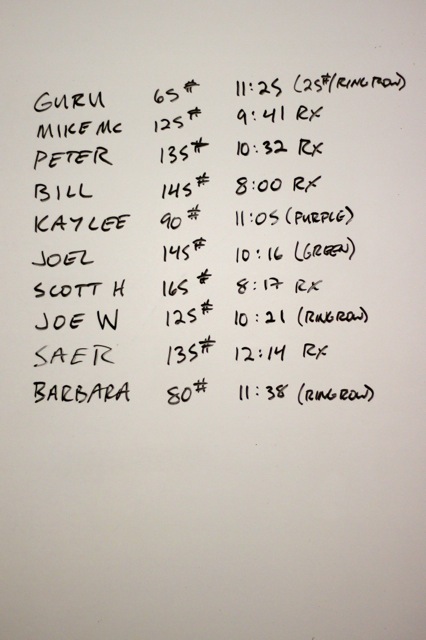 GURU 65# 11:25 (25#/RING ROW)
MIKE MC 125# 9:41 RX
PETER 135# 10:32 RX
BILL 145# 8:00 RX
KAYLEE 90# 11:05 (PURPLE)
JOEL 145# 10:16 (GREEN)
SCOTT H 165# 8:17 RX
JOE W 125# 10:21 (RING ROW)
SAER 135# 12:14 RX
BARBARA 80# 11:38 (RING ROW)